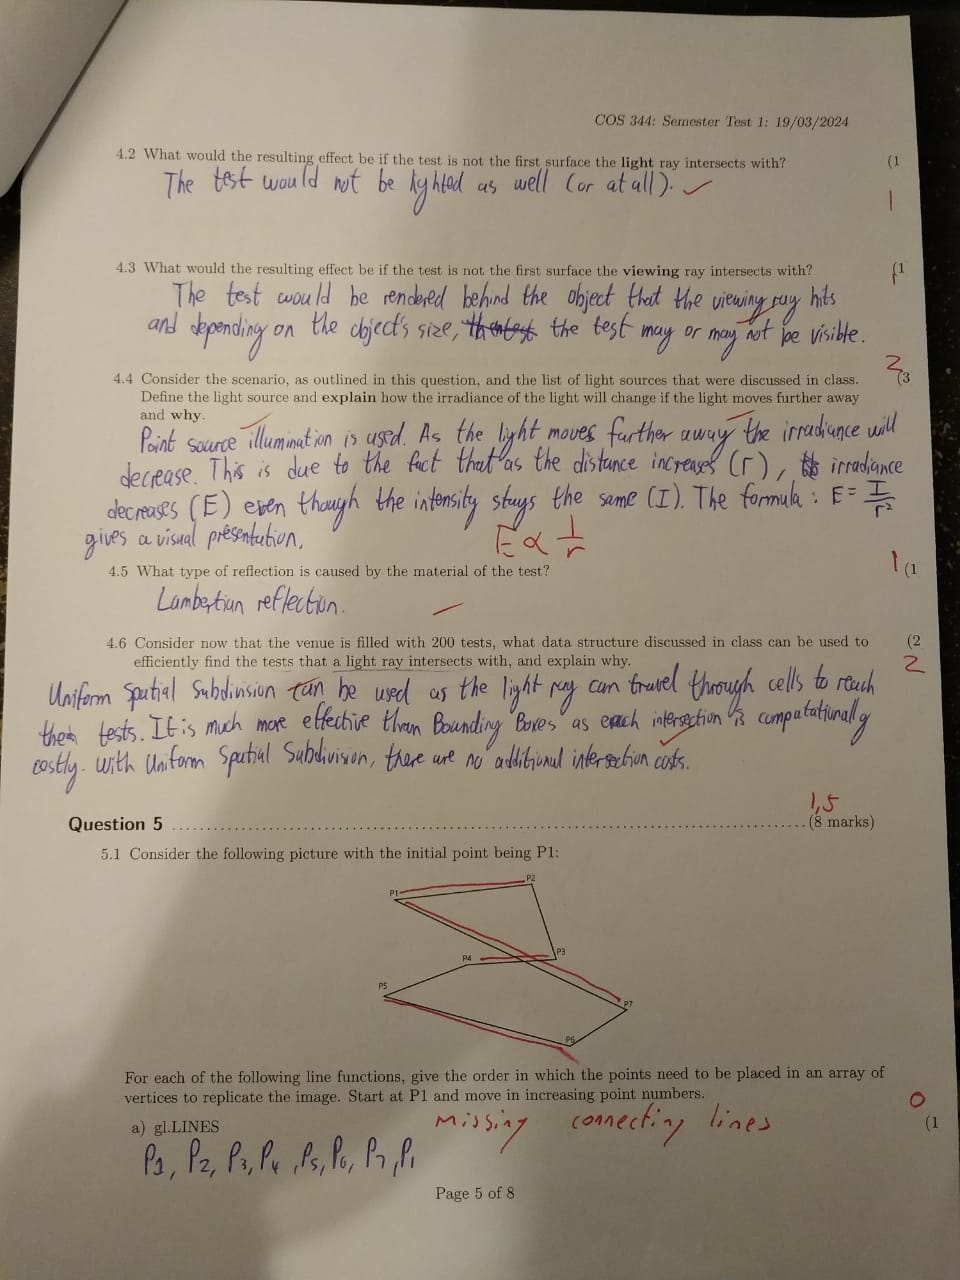 COS 344: Semester Test 1: 19/03/2024
4.2 What would the resulting effect be if the test is not the first surface the light ray intersects with? (1
The test would not be lighted as well (or at all). ✓
1
4.3 What would the resulting effect be if the test is not the first surface the viewing ray intersects with? (1
1
The test would be rendered behind the object that the viewing ray hits
and depending on the object's size, the test may or may not be visible.
4.4 Consider the scenario, as outlined in this question, and the list of light sources that were discussed in class. (3
Define the light source and explain how the irradiance of the light will change if the light moves further away
and why.
Point source illumination is used. As the light moves further away the irradiance will
decrease. This is due to the fact that as the distance increases (r), irradiance
decreases (E) even though the intensity stays the same (I). The formula : E = I/r²
gives a visual presentation.
E ∝ 1/r
4.5 What type of reflection is caused by the material of the test? 1 (1
Lambertian reflection.
4.6 Consider now that the venue is filled with 200 tests, what data structure discussed in class can be used to (2
efficiently find the tests that a light ray intersects with, and explain why. 2
Uniform Spatial Subdivision can be used as the light ray can travel through cells to reach
the tests. It is much more effective than Bounding Boxes as each intersection is computationally
costly. With Uniform Spatial Subdivision, there are no additional intersection costs.
1,5
Question 5 (8 marks)
5.1 Consider the following picture with the initial point being P1:
P2
P1
P3
P4
P5
P7
P6
For each of the following line functions, give the order in which the points need to be placed in an array of
vertices to replicate the image. Start at P1 and move in increasing point numbers. 0
a) gl.LINES missing connecting lines (1
P1, P2, P3, P4, P5, P6, P7, P1
Page 5 of 8